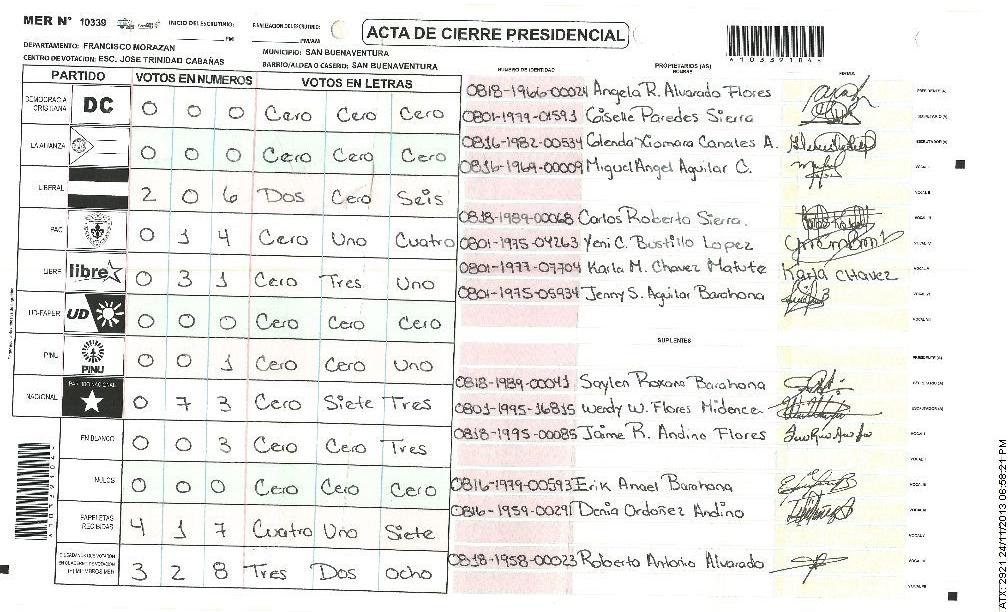 MER N° 10339 INICIO DEL ESCRUTINIO: PM FINALIZACION DEL ESCRUTINIO: PM/AM
ACTA DE CIERRE PRESIDENCIAL
DEPARTAMENTO: FRANCISCO MORAZAN MUNICIPIO: SAN BUENAVENTURA
CENTRO DE VOTACION: ESC. JOSE TRINIDAD CABAÑAS BARRIO/ALDEA O CASERIO: SAN BUENAVENTURA
PARTIDO VOTOS EN NUMEROS VOTOS EN LETRAS
DEMOCRACIA CRISTIANA DC 0 0 0 Cero Cero Cero
LA ALIANZA 0 0 0 Cero Cero Cero
LIBERAL 2 0 6 Dos Cero Seis
PAC 0 1 4 Cero Uno Cuatro
LIBRE libre 0 3 1 Cero Tres Uno
UD-FAPER UD 0 0 0 Cero Cero Cero
PINU PINU 0 0 1 Cero Cero Uno
NACIONAL PARTIDO NACIONAL 0 7 3 Cero Siete Tres
EN BLANCO 0 0 3 Cero Cero Tres
NULOS 0 0 0 Cero Cero Cero
PAPELETAS RECIBIDAS 4 1 7 Cuatro Uno Siete
3 2 8 Tres Dos ocho
NUMERO DE IDENTIDAD PROPIETARIOS (AS) NOMBRE FIRMA
0818-1966-00024 Angela R. Alvarado Flores PRESIDENTE (A)
0801-1979-01591 Giselle Paredes Sierra SECRETARIO (A)
0816-1982-00534 Glenda Xiomara Canales A. ESCRUTADOR (A)
0816-1969-00009 Miguel Angel Aguilar C. VOCAL I
VOCAL II
0818-1989-00068 Carlos Roberto Sierra. VOCAL III
0801-1975-04263 Yeni C. Bustillo Lopez VOCAL IV
0801-1977-07704 Karla M. Chavez Matute Karla Chavez VOCAL V
0801-1975-05934 Jenny S. Aguilar Barahona VOCAL VI
VOCAL VII
SUPLENTES
PRESIDENTE (A)
0818-1989-00041 Saylen Roxana Barahona SECRETARIO (A)
0801-1995-16815 Wendy W. Flores Midence ESCRUTADOR (A)
0818-1995-00085 Jaime R. Andino Flores VOCAL I
VOCAL II
0816-1979-00593 Erik Anael Barahona VOCAL III
0816-1959-00291 Denia Ordoñez Andino VOCAL IV
VOCAL V
0818-1958-00023 Roberto Antonio Alvarado VOCAL VI
VOCAL VII